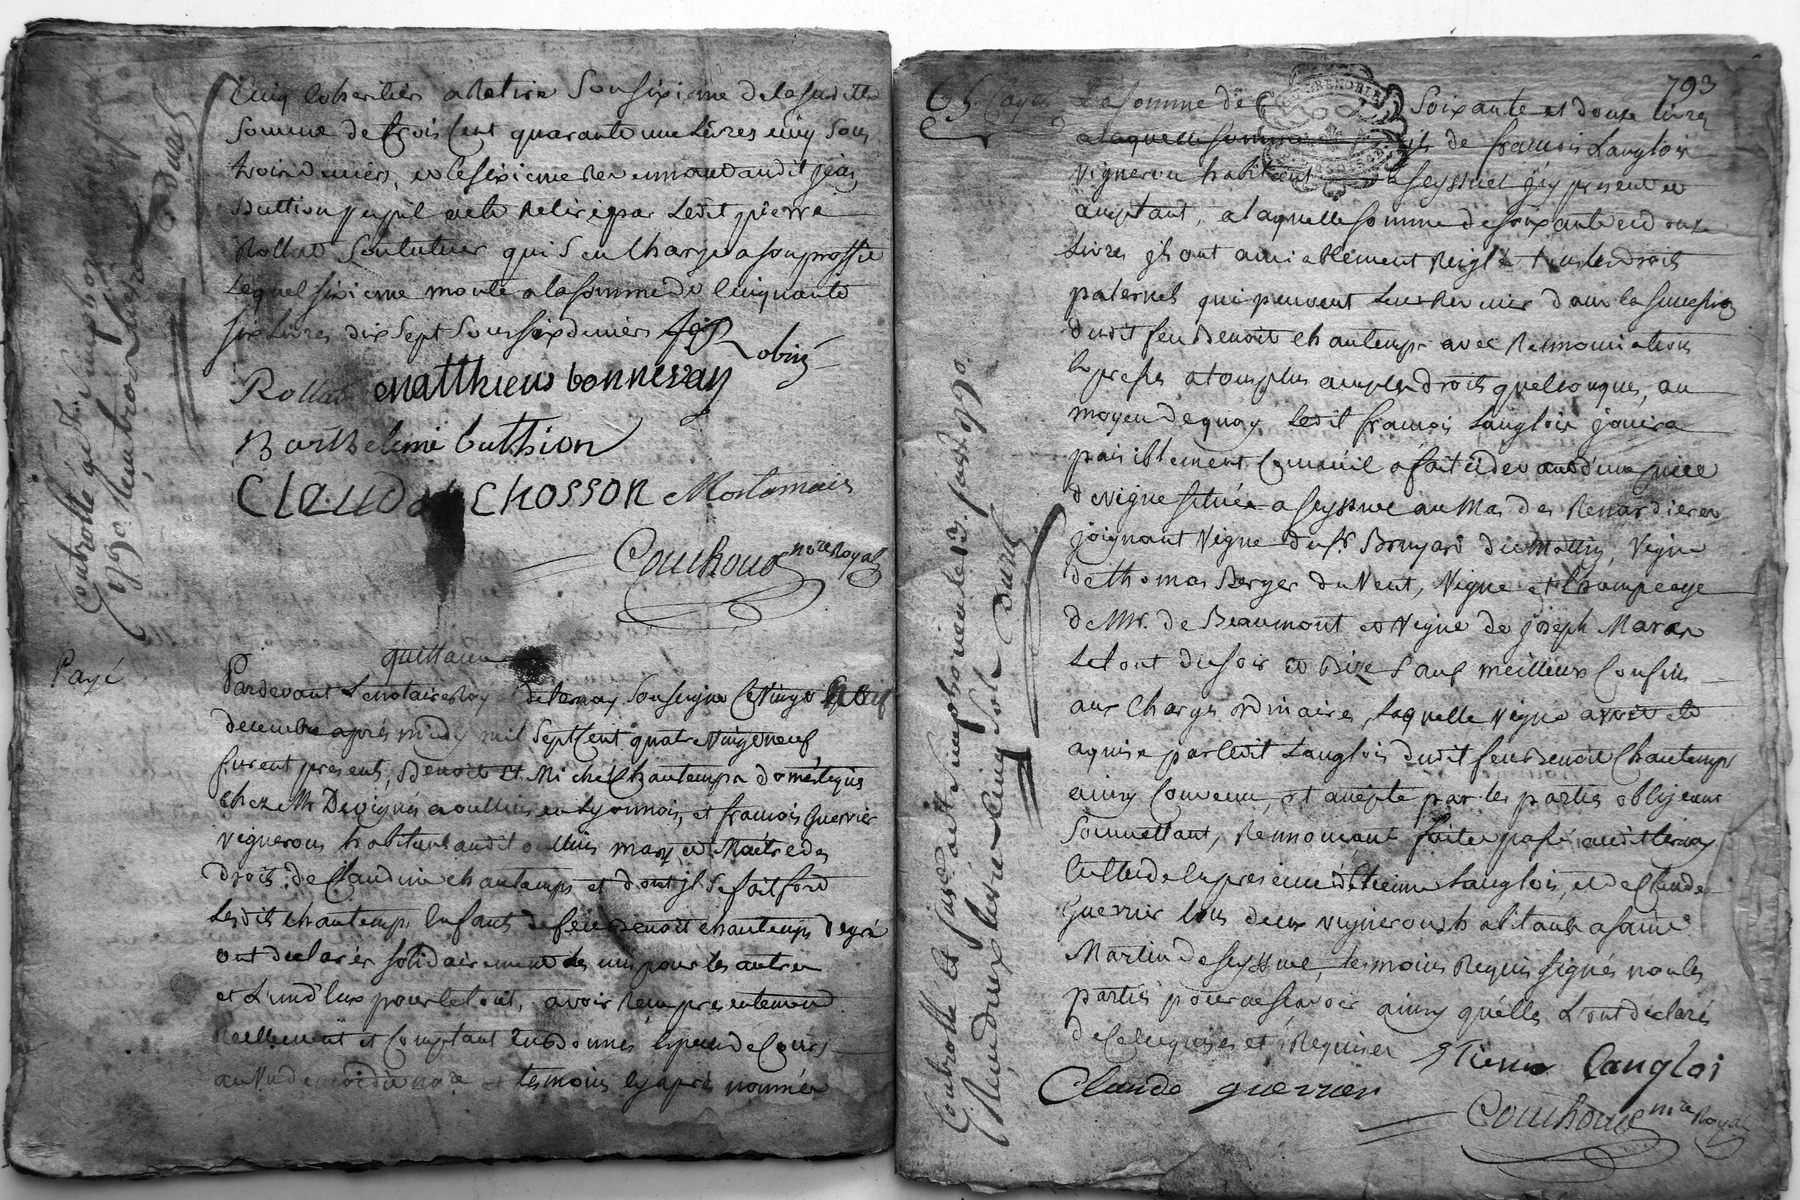 Cinq coheritiers a Retiré Son sixieme de la susditte
Somme de trois Cent quarante une Livres cinq Sous
trois deniers, et le sixieme Revenant audit
Buttion pupil a été Retiré par Ledit pierre
Rollat Son tuteur qui S'en Charge a son proffit
Lequel sixieme monte a la somme de Cinquante
six Livres dix Sept Sous six deniers
Robin
Rollat Matthieus bonnesay
Barthelemi buthion
CLAUDE CHOSSON
Couchoud nre Royal
Controllé
1790. Reçu
Payé
quittance
Pardevant Le notaire Roy de ternay Soussigné Le Vingt
decembre après midy mil Sept Cent quatre Vingt neuf
furent presents, Benoit Et Michel Chautemps domestiques
chez Mr Devignes a oullins en Lyonnois, et francois Guerrier
vigneron habitant audit oullins mary et Maitre des
droits de Claudine chautemps et dont jl Se fait ford
Lesdits chautemps Enfants de feu Benoit chautemps de gré
ont declarés solidairement Les uns pour les autres
et L'un d'eux pour le tout, avoir Reçu presentement
Reellement et Comptant En bonnes Especes de Cours
au Vu de moi dit nore et temoins Cy après nommés
793
La somme de Soixante et douze livres
a laquelle somme de francois Langlois
Vigneron habitant a Seyssuel jcy present et
aceptant, a laquelle somme de soixante et douze
Livres jls ont amiablement Reiglé tous les droits
paternels qui peuvent leur Revenir dans la succession
dudit feu Benoit chautemps avec Rennonciation
Expresse a tous plus amples droits quelconques, au
moyen de quoy Ledit francois Langlois jouira
paisiblement Comme il a fait cidevant d'une piece
de vigne située a Seyssuel au Mas des Renardieres
joignant Vigne du Sr Bruyard du Matin, Vigne
de thomas Berger du Vent, Vigne et Champeage
de Mr. de Beaumont et Vigne de joseph Maras
Le tout du soir et Bize Sauf meilleurs Confins
aux Charges ordinaires, Laquelle Vigne avoit été
aquise par Ledit Langlois dudit feu Benoit Chautemps
ainsy Convenu, et accepté par les parties obligeant
Soumettant, Rennoncant fait et passé audit ternay
Etude En presence d'Etienne Langlois, et de Claude
Guerrier tous deux vignerons habitants a Saint
Martin de Seyssuel, temoins Requis signés non les
parties pour ne sçavoir ainsy qu'elles L'ont declarés
de Ce Enquises et Requises
Etienne Langloi
Claude guerrier
Couchoud nre Royal